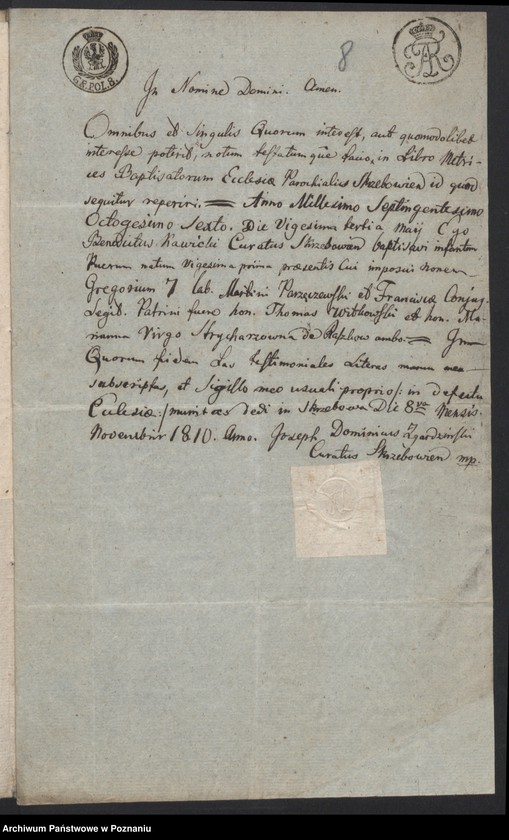 G. & POL. 8.
8
In Nomine Domini. Amen.
Omnibus et Singulis Quorum interest, aut quomodolibet
interesse poterit, notum testatumque facio, in Libro Metri-
ces Baptisatorum Ecclesiæ Parochialis Skrzebovien id quod
sequitur reperiri. = Anno Millesimo Septingentesimo
Octogesimo Sexto. Die Vigesima tertia Maij Ego
Benedictus Rawicki Curatus Skrzeboven baptisavi infantem
Puerum natum vigesima prima præsentis Cui imposui nomen
Gregorium lab. Martini Parzęczewski et Franciscæ Conjug.
Legit. Patrini fuere hon. Thomas Witkowski et hon. Ma-
rianna Virgo Strycharzowna de ambo. = In
Quorum fidem has testimoniales Literas manu mea
subscriptas, et Sigillo meo usuali proprio /: in defectu
Eclesiæ :/ munitas dedi in Skrzebowa Die 8va Mensis
Novembris 1810. Anno. Joseph Dominicus Zgardzinski
Curatus Skrzebowien mp.
Archiwum Państwowe w Poznaniu